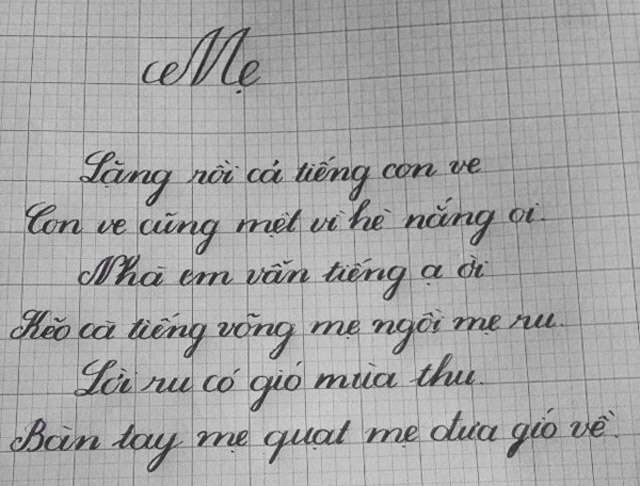 Mẹ
Lặng rồi cả tiếng con ve
Con ve cũng mệt vì hè nắng oi.
Nhà em vẫn tiếng ạ ời
Kẽo cà tiếng võng mẹ ngồi mẹ ru.
Lời ru có gió mùa thu.
Bàn tay mẹ quạt mẹ đưa gió về.